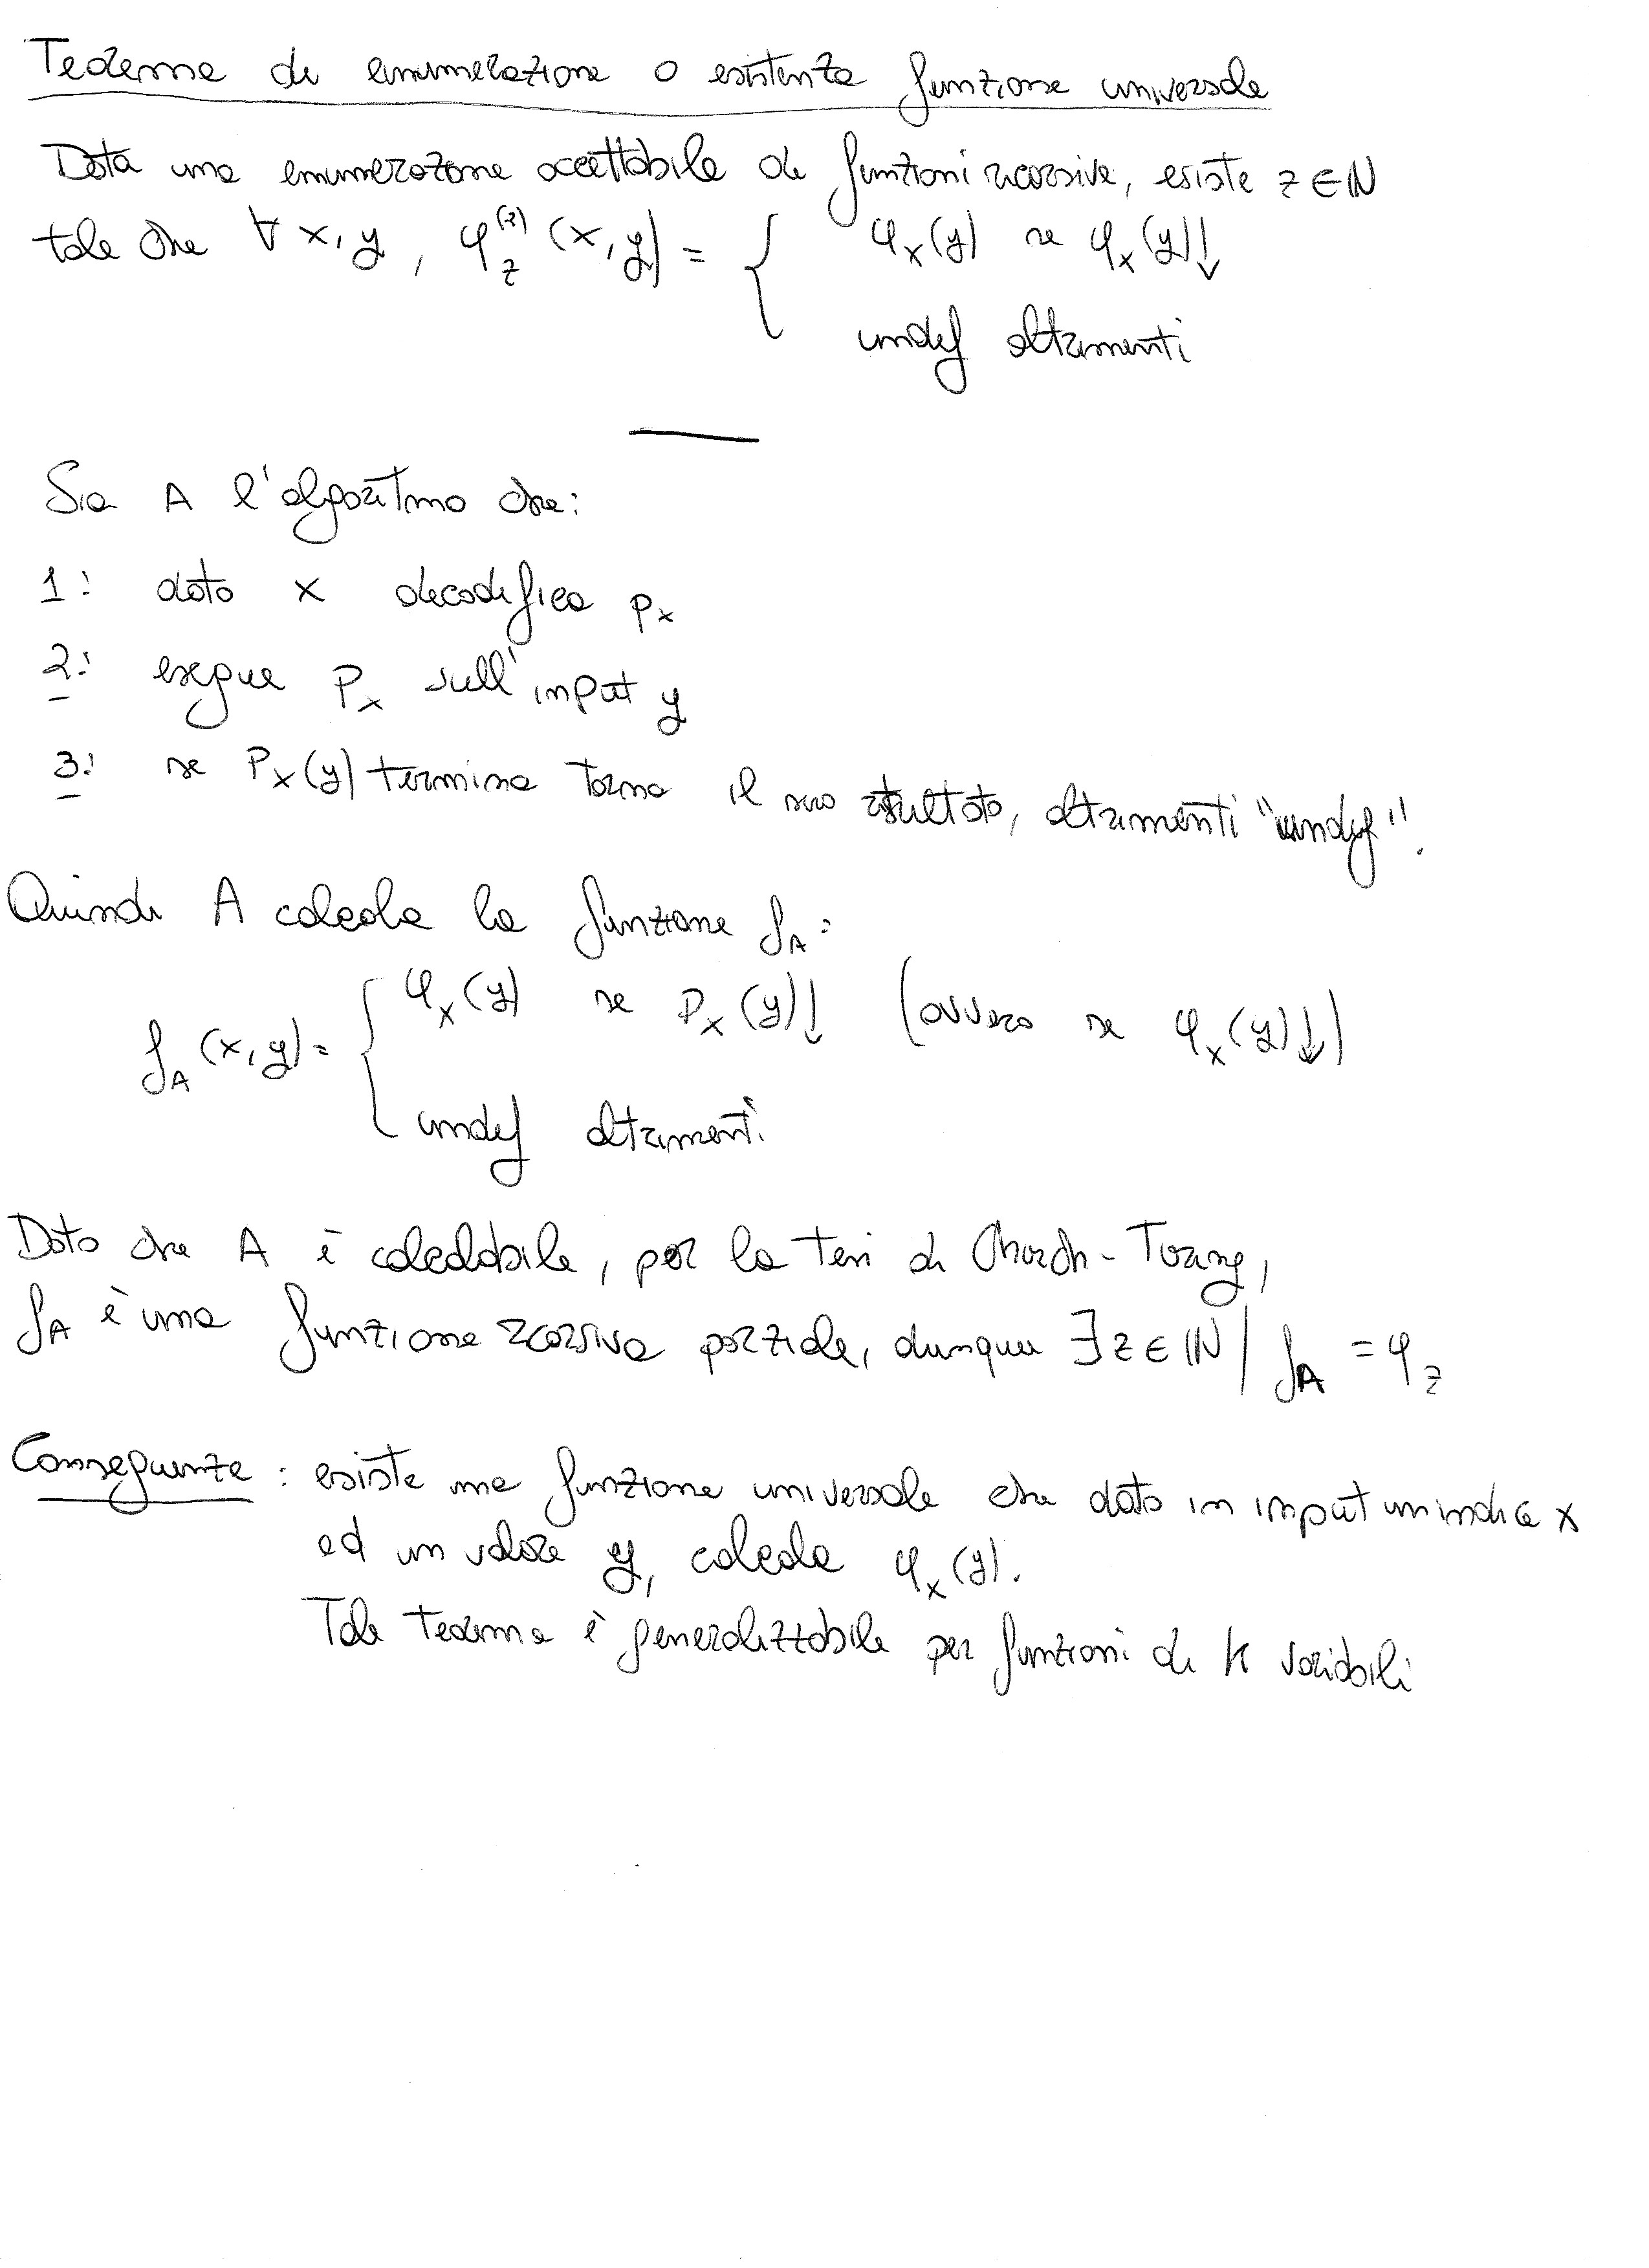 Teorema di enumerazione o esistenza funzione universale
Data una enumerazione accettabile di funzioni ricorsive, esiste z ∈ ℕ
tale che ∀ x, y , φ_z^(2) (x, y) = { φ_x(y) se φ_x(y)↓
undef altrimenti
Sia A l'algoritmo che:
1: dato x decodifica P_x
2: esegue P_x sull'input y
3: se P_x(y) termina torna il suo risultato, altrimenti "undef".
Quindi A calcola la funzione f_A:
f_A(x, y) = { φ_x(y) se P_x(y)↓ (ovvero se φ_x(y)↓)
undef altrimenti
Dato che A è calcolabile, per la tesi di Church-Turing,
f_A è una funzione ricorsiva parziale, dunque ∃ z ∈ ℕ | f_A = φ_z
Conseguenze : esiste una funzione universale che dato in input un indice x
ed un valore y, calcola φ_x(y).
Tale teorema è generalizzabile per funzioni di k variabili